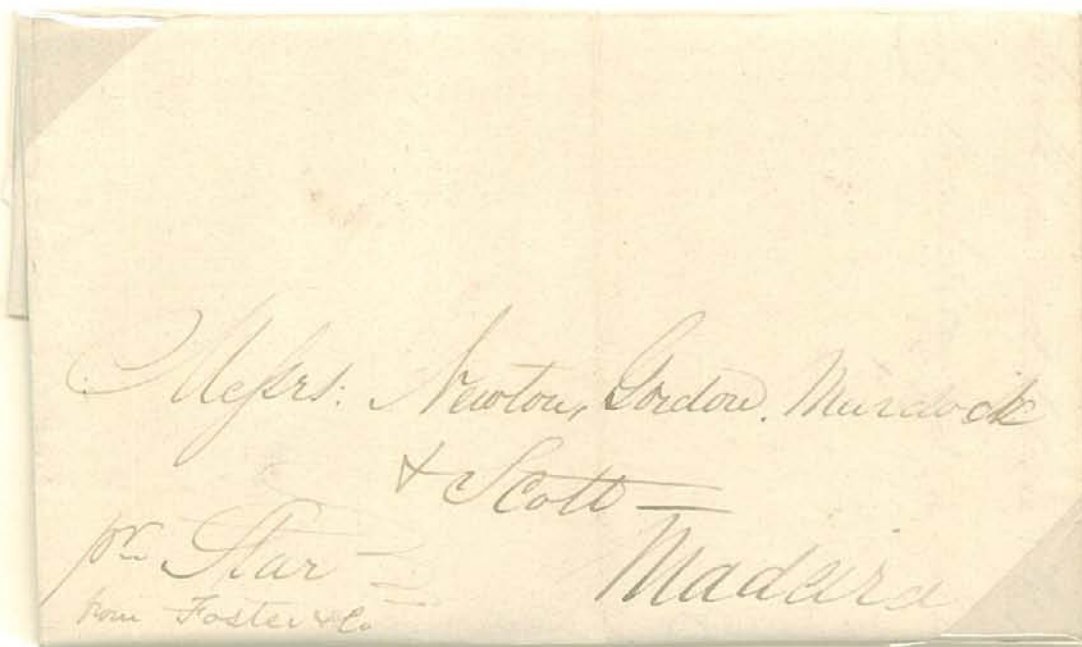 Messrs: Newton, Gordon, Murdock
& Scott —
Madeira
pr Star =
from Foster & Co